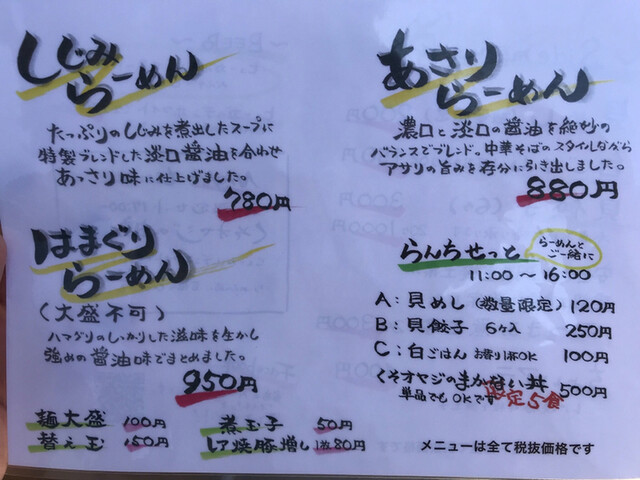 しじみ
らーめん
たっぷりのしじみを煮出したスープに
特製ブレンドした淡口醤油を合わせ
あっさり味に仕上げました。
780円
はまぐり
らーめん
(大盛不可)
ハマグリのしっかりした滋味を生かし
強めの醤油味でまとめました。
950円
麺大盛 100円
替え玉 150円
煮玉子 50円
レア焼豚増し 1枚80円
あさり
らーめん
濃口と淡口の醤油を絶妙の
バランスでブレンド。中華そばのスタイルながら
アサリの旨みを存分に引き出しました。
880円
らんちせっと
らーめんと
ご一緒に
11:00 ~ 16:00
A:貝めし(数量限定) 120円
B:貝餃子 6ヶ入 250円
C:白ごはん お替り1杯OK 100円
くそオヤジのまかない丼 500円
単品でもOKです 限定5食
メニューは全て税抜価格です